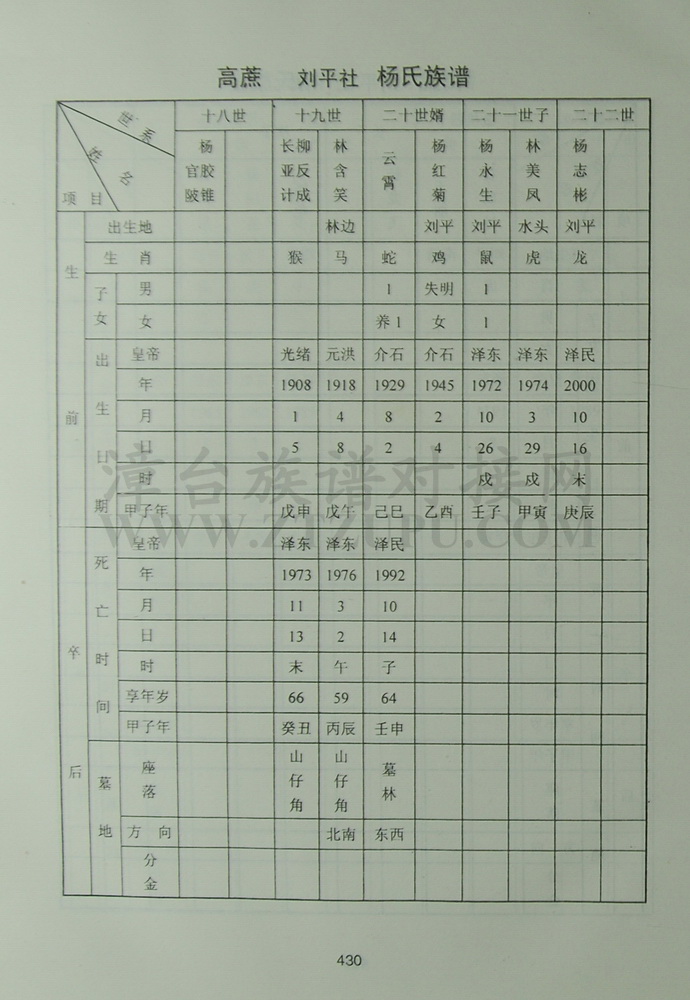 高蔗 刘平社 杨氏族谱
世系 十八世 十九世 二十世婿 二十一世子 二十二世
姓名
项目
杨官陂 胶锥 长亚计 柳反成 林含笑 云霄 杨红菊 杨永生 林美凤 杨志彬
生前
出生地 林边 刘平 刘平 水头 刘平
生肖 猴 马 蛇 鸡 鼠 虎 龙
子女 男 1 失明 1
女 养1 女 1
出生日期 皇帝 光绪 元洪 介石 介石 泽东 泽东 泽民
年 1908 1918 1929 1945 1972 1974 2000
月 1 4 8 2 10 3 10
日 5 8 2 4 26 29 16
时 戍 戍 末
甲子年 戊申 戊午 己巳 乙酉 壬子 甲寅 庚辰
卒后
死亡时间 皇帝 泽东 泽东 泽民
年 1973 1976 1992
月 11 3 10
日 13 2 14
时 末 午 子
享年岁 66 59 64
甲子年 癸丑 丙辰 壬申
墓地 座落 山仔角 山仔角 墓林
方向 北南 东西
分金
漳台族谱对接网
430